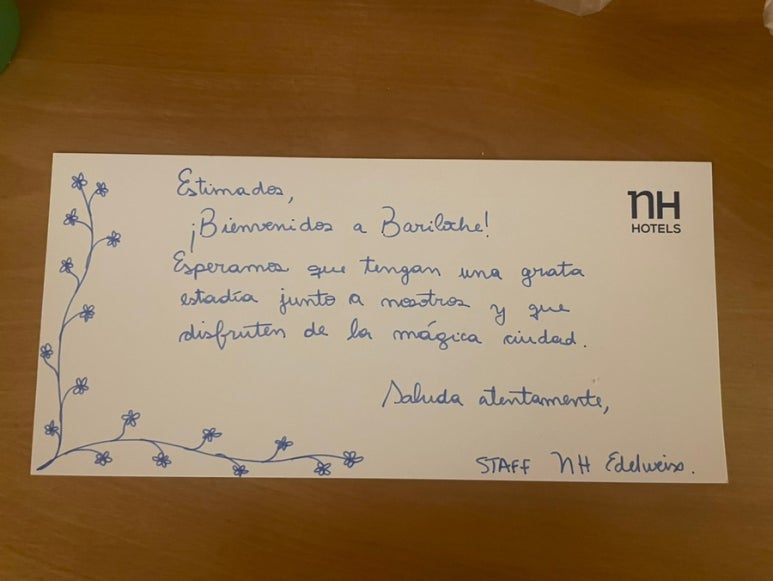 Estimados,
nH
HOTELS
¡Bienvenidos a Bariloche!
Esperamos que tengan una grata
estadía junto a nosotros y que
disfruten de la mágica ciudad.
Saluda atentamente,
STAFF NH Edelweiss.